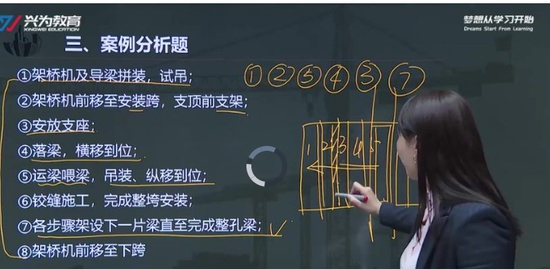 兴为教育
XINGWEI EDUCATION
梦想从学习开始
Dreams Start From Learning
三、案例分析题
①架桥机及导梁拼装，试吊；
②架桥机前移至安装跨，支顶前支架；
③安放支座；
④落梁，横移到位；
⑤运梁喂梁，吊装、纵移到位；
⑥铰缝施工，完成整垮安装；
⑦各步骤架设下一片梁直至完成整孔梁；
⑧架桥机前移至下跨
① ② ⑤ ④ ③ ⑦
1 2 3 4 5